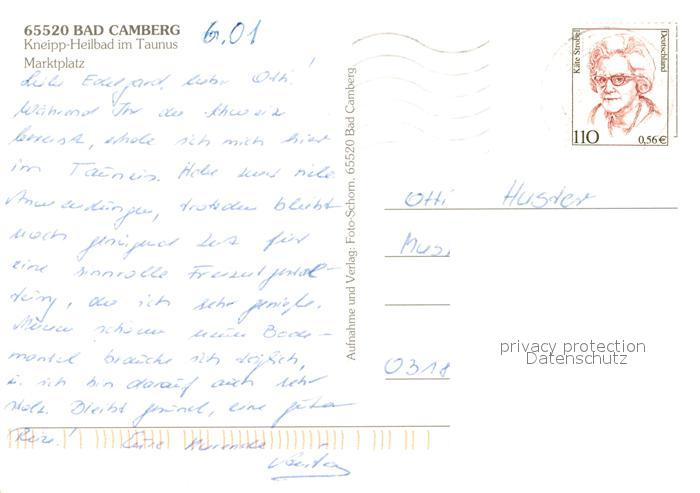 65520 BAD CAMBERG
Kneipp-Heilbad im Taunus
Marktplatz
6.01
Liebe Edelgard, lieber Otti!
Während Ihr die Schweiz
bereist, erhole ich mich hier
im Taunus. Habe zwar viele
Anwendungen, trotzdem bleibt
noch genügend Zeit für
eine sinnvolle Freizeitgestal-
tung, die ich sehr genieße.
Meinen schönen neuen Bade-
mantel brauche ich täglich,
u. ich bin darauf auch sehr
stolz. Bleibt gesund, eine gute
Reise! Eure
Aufnahme und Verlag: Foto-Schorn, 65520 Bad Camberg
Käte Strobel
Deutschland
110
0,56 €
Otti Huster
0318
privacy protection
Datenschutz